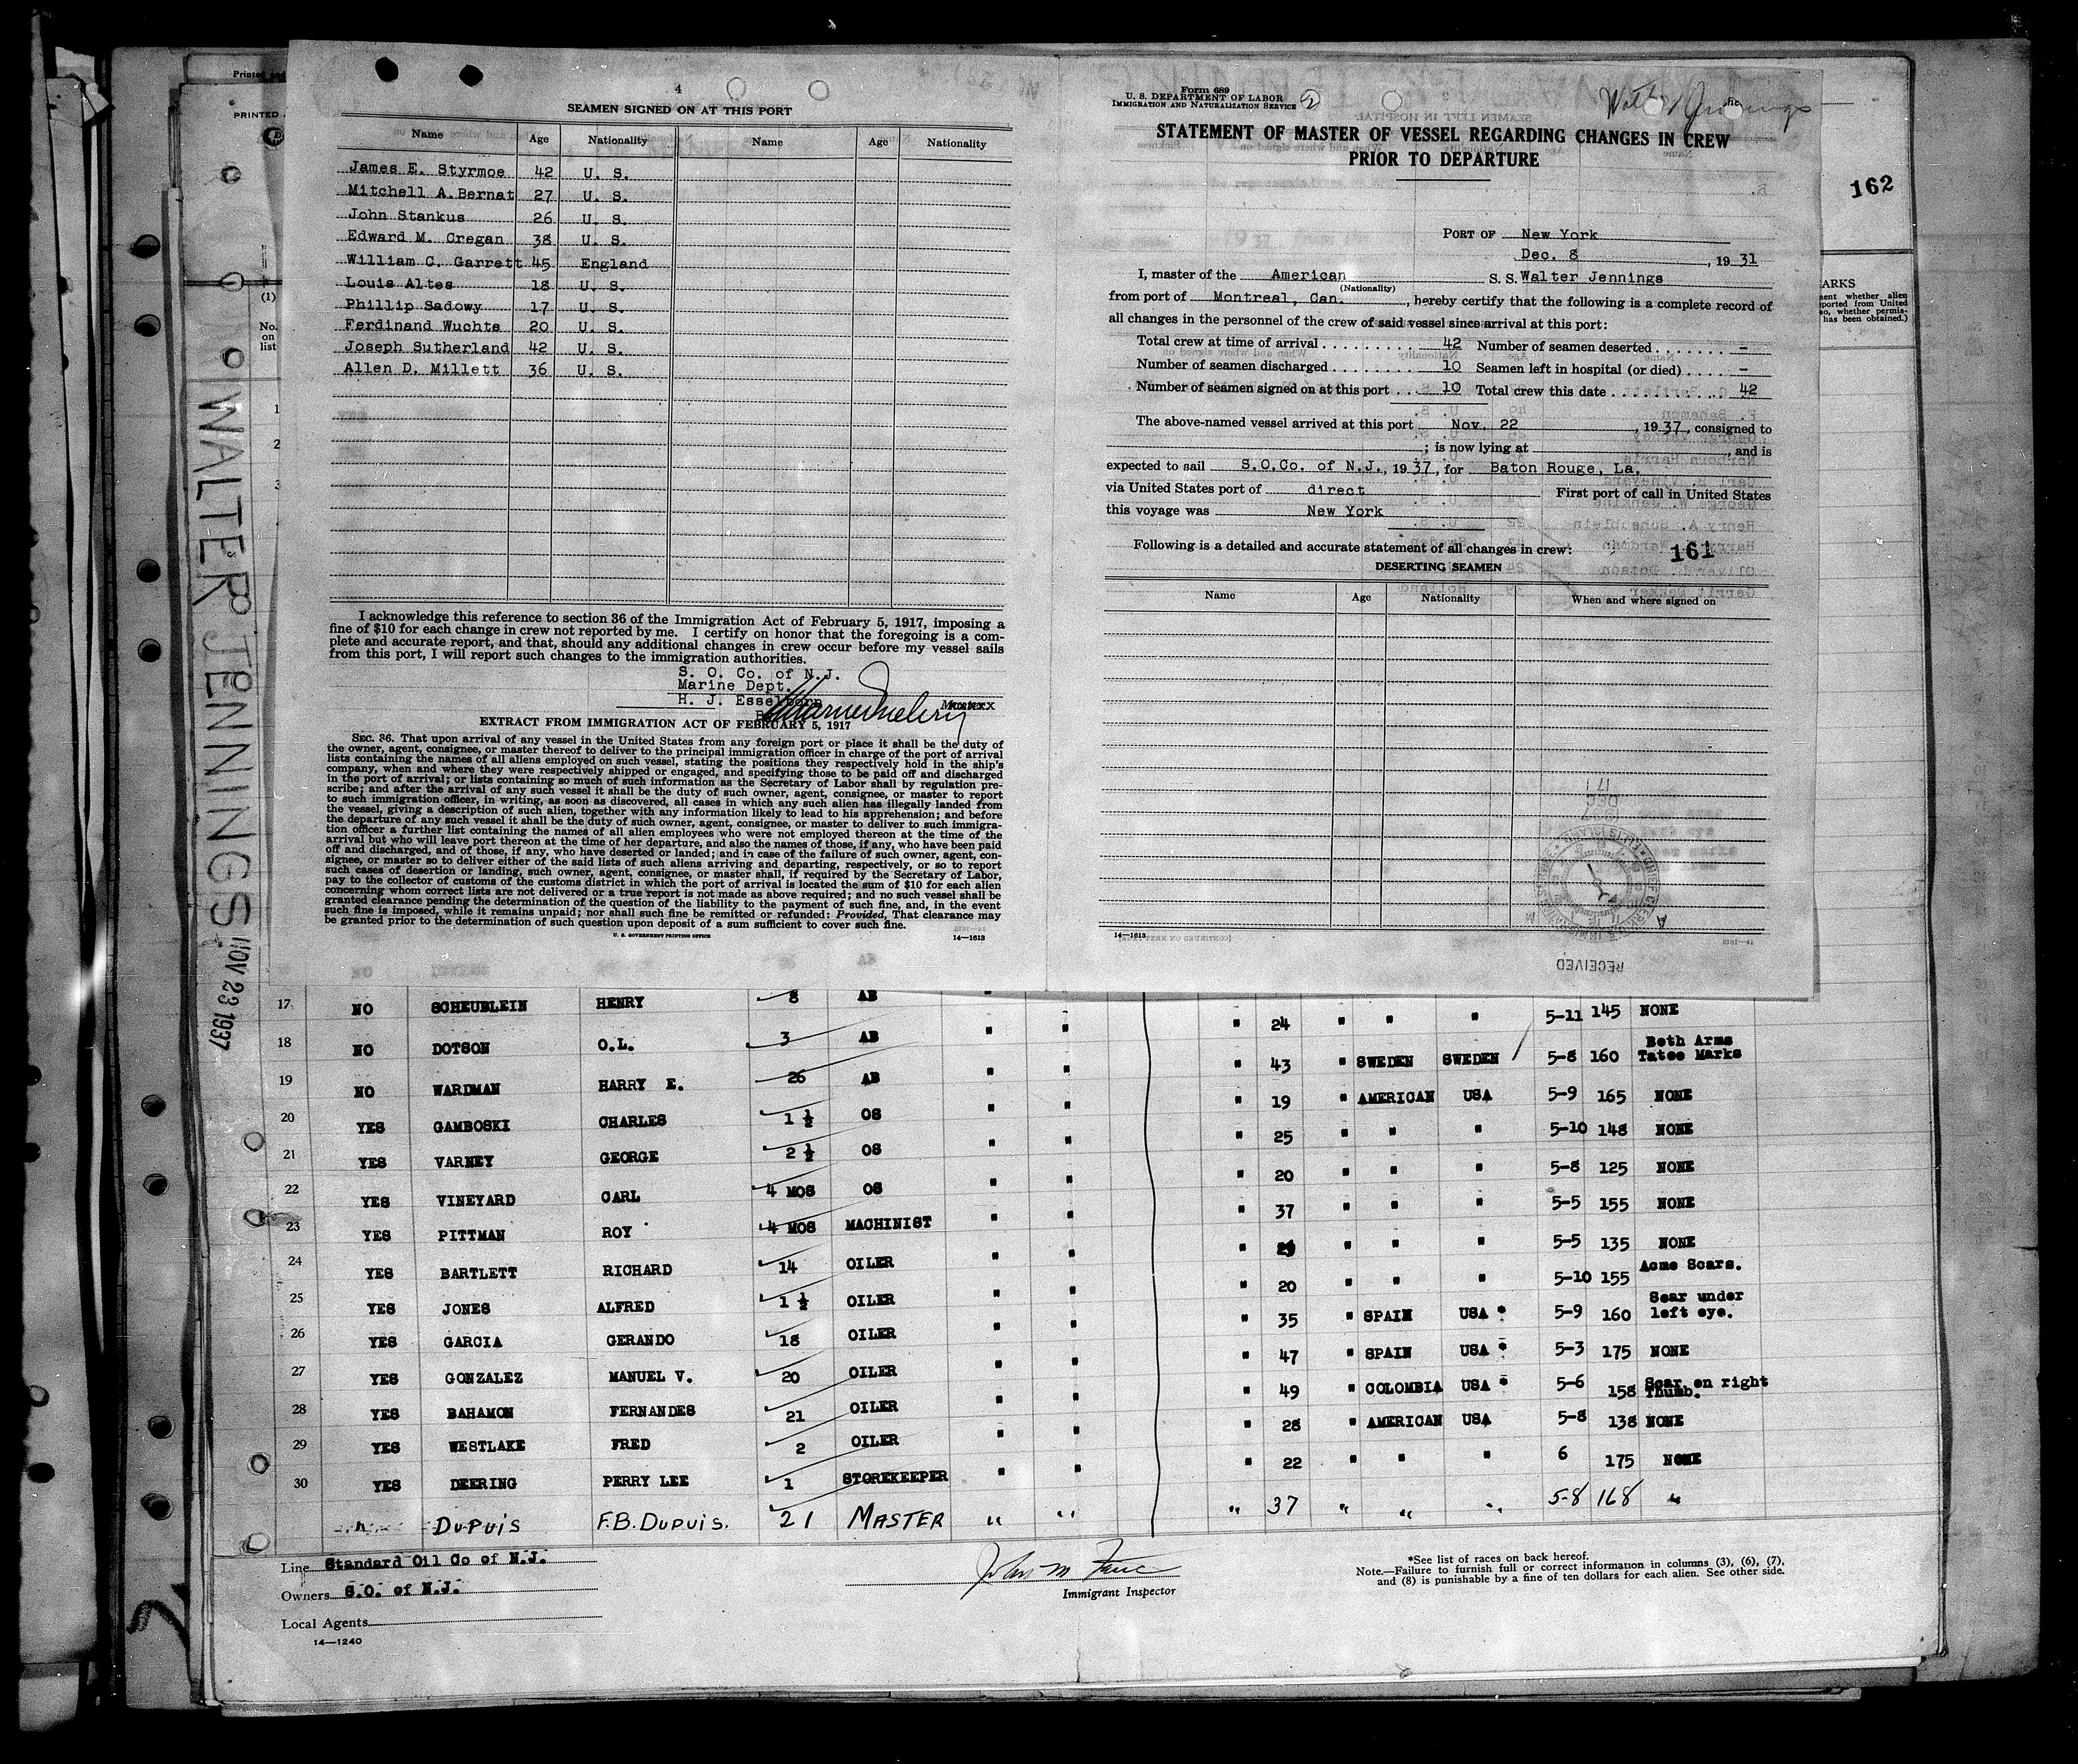 4
SEAMEN SIGNED ON AT THIS PORT
Name Age Nationality Name Age Nationality
James E. Styrmoe 42 U. S.
Mitchell A.Bernat 27 U. S.
John Stankus 26 U. S.
Edward M. Cregan 38 U. S.
William C. Garrett 45 England
Louis Altes 18 U. S.
Phillip Sadowy 17 U. S.
Ferdinand Wuchte 20 U. S.
Joseph Sutherland 42 U. S.
Allen D. Millett 36 U. S.
I acknowledge this reference to section 36 of the Immigration Act of February 5, 1917, imposing a
fine of $10 for each change in crew not reported by me. I certify on honor that the foregoing is a com-
plete and accurate report, and that, should any additional changes in crew occur before my vessel sails
from this port, I will report such changes to the immigration authorities.
S. O. Co. of N.J.
Marine Dept.
H. J. Esselborn
Master
EXTRACT FROM IMMIGRATION ACT OF FEBRUARY 5, 1917
SEC. 36. That upon arrival of any vessel in the United States from any foreign port or place it shall be the duty of
the owner, agent, consignee, or master thereof to deliver to the principal immigration officer in charge of the port of arrival
lists containing the names of all aliens employed on such vessel, stating the positions they respectively hold in the ship's
company, when and where they were respectively shipped or engaged, and specifying those to be paid off and discharged
in the port of arrival; or lists containing so much of such information as the Secretary of Labor shall by regulation pre-
scribe; and after the arrival of any such vessel it shall be the duty of such owner, agent, consignee, or master to report
to such immigration officer, in writing, as soon as discovered, all cases in which any such alien has illegally landed from
the vessel, giving a description of such alien, together with any information likely to lead to his apprehension; and before
the departure of any such vessel it shall be the duty of such owner, agent, consignee, or master to deliver to such immigra-
tion officer a further list containing the names of all alien employees who were not employed thereon at the time of the
arrival but who will leave port thereon at the time of her departure, and also the names of those, if any, who have been paid
off and discharged, and of those, if any, who have deserted or landed; and in case of the failure of such owner, agent, con-
signee, or master so to deliver either of the said lists of such aliens arriving and departing, respectively, or so to report
such cases of desertion or landing, such owner, agent, consignee, or master shall, if required by the Secretary of Labor,
pay to the collector of customs of the customs district in which the port of arrival is located the sum of $10 for each alien
concerning whom correct lists are not delivered or a true report is not made as above required; and no such vessel shall be
granted clearance pending the determination of the question of the liability to the payment of such fine, and, in the event
such fine is imposed, while it remains unpaid; nor shall such fine be remitted or refunded: Provided, That clearance may
be granted prior to the determination of such question upon deposit of a sum sufficient to cover such fine.
U. S. GOVERNMENT PRINTING OFFICE 14—1613
Form 689
U. S. DEPARTMENT OF LABOR
IMMIGRATION AND NATURALIZATION SERVICE
2
Walter Jennings
STATEMENT OF MASTER OF VESSEL REGARDING CHANGES IN CREW
PRIOR TO DEPARTURE
PORT OF New York
Dec. 8, 1931
I, master of the American S. S. Walter Jennings
(Nationality)
from port of Montreal, Can., hereby certify that the following is a complete record of
all changes in the personnel of the crew of said vessel since arrival at this port:
Total crew at time of arrival 42 Number of seamen deserted –
Number of seamen discharged 10 Seamen left in hospital (or died) –
Number of seamen signed on at this port 10 Total crew this date 42
The above-named vessel arrived at this port Nov. 22, 1937, consigned to
; is now lying at , and is
expected to sail S.O.Co. of N.J., 1937, for Baton Rouge, La.
via United States port of direct First port of call in United States
this voyage was New York
Following is a detailed and accurate statement of all changes in crew:
161
DESERTING SEAMEN
Name Age Nationality When and where signed on
14—1613
RECEIVED
162
WALTER JENNINGS.
NOV 23 1937
PRINTED
(1)
No.
on
list
1
2
3
ARKS
17 NO SCHEUBLEIN HENRY 8 AB " "
18 NO DOTSON O.L. 3 AB " " " 24 " " " 5-11 145 NONE
19 NO WARDMAN HARRY E. 26 AB " " " 43 " SWEDEN SWEDEN 5-8 160 Both Arms Tatoo Marks
20 YES GAMBOSKI CHARLES 1 ½ OS " " " 19 " AMERICAN USA 5-9 165 NONE
21 YES VARNEY GEORGE 2 ½ OS " " " 25 " " " 5-10 148 NONE
22 YES VINEYARD CARL 4 MOS OS " " " 20 " " " 5-8 125 NONE
23 YES PITTMAN ROY 4 MOS MACHINIST " " " 37 " " " 5-5 155 NONE
24 YES BARTLETT RICHARD 14 OILER " " " " " " 5-5 135 NONE
25 YES JONES ALFRED 1 ½ OILER " " " 20 " " " 5-10 155 Acme Scars.
26 YES GARCIA GERANDO 18 OILER " " " 35 " SPAIN USA * 5-9 160 Scar under left eye.
27 YES GONZALEZ MANUEL V. 20 OILER " " " 47 " SPAIN USA * 5-3 175 NONE
28 YES BAHAMON FERNANDES 21 OILER " " " 49 " COLOMBIA USA * 5-6 158 Scar on right Thumb.
29 YES WESTLAKE FRED 2 OILER " " " 28 " AMERICAN USA 5-8 138 NONE
30 YES DEERING PERRY LEE 1 STOREKEEPER " " " 22 " " " 6 175 NONE
DUPUIS F.B. DUPUIS. 21 MASTER " " " 37 " " " 5-8 168 "
Line Standard Oil Co of N.J.
Owners S.O. of N.J.
Local Agents
14—1240
Immigrant Inspector
*See list of races on back hereof.
Note.—Failure to furnish full or correct information in columns (3), (6), (7),
and (8) is punishable by a fine of ten dollars for each alien. See other side.